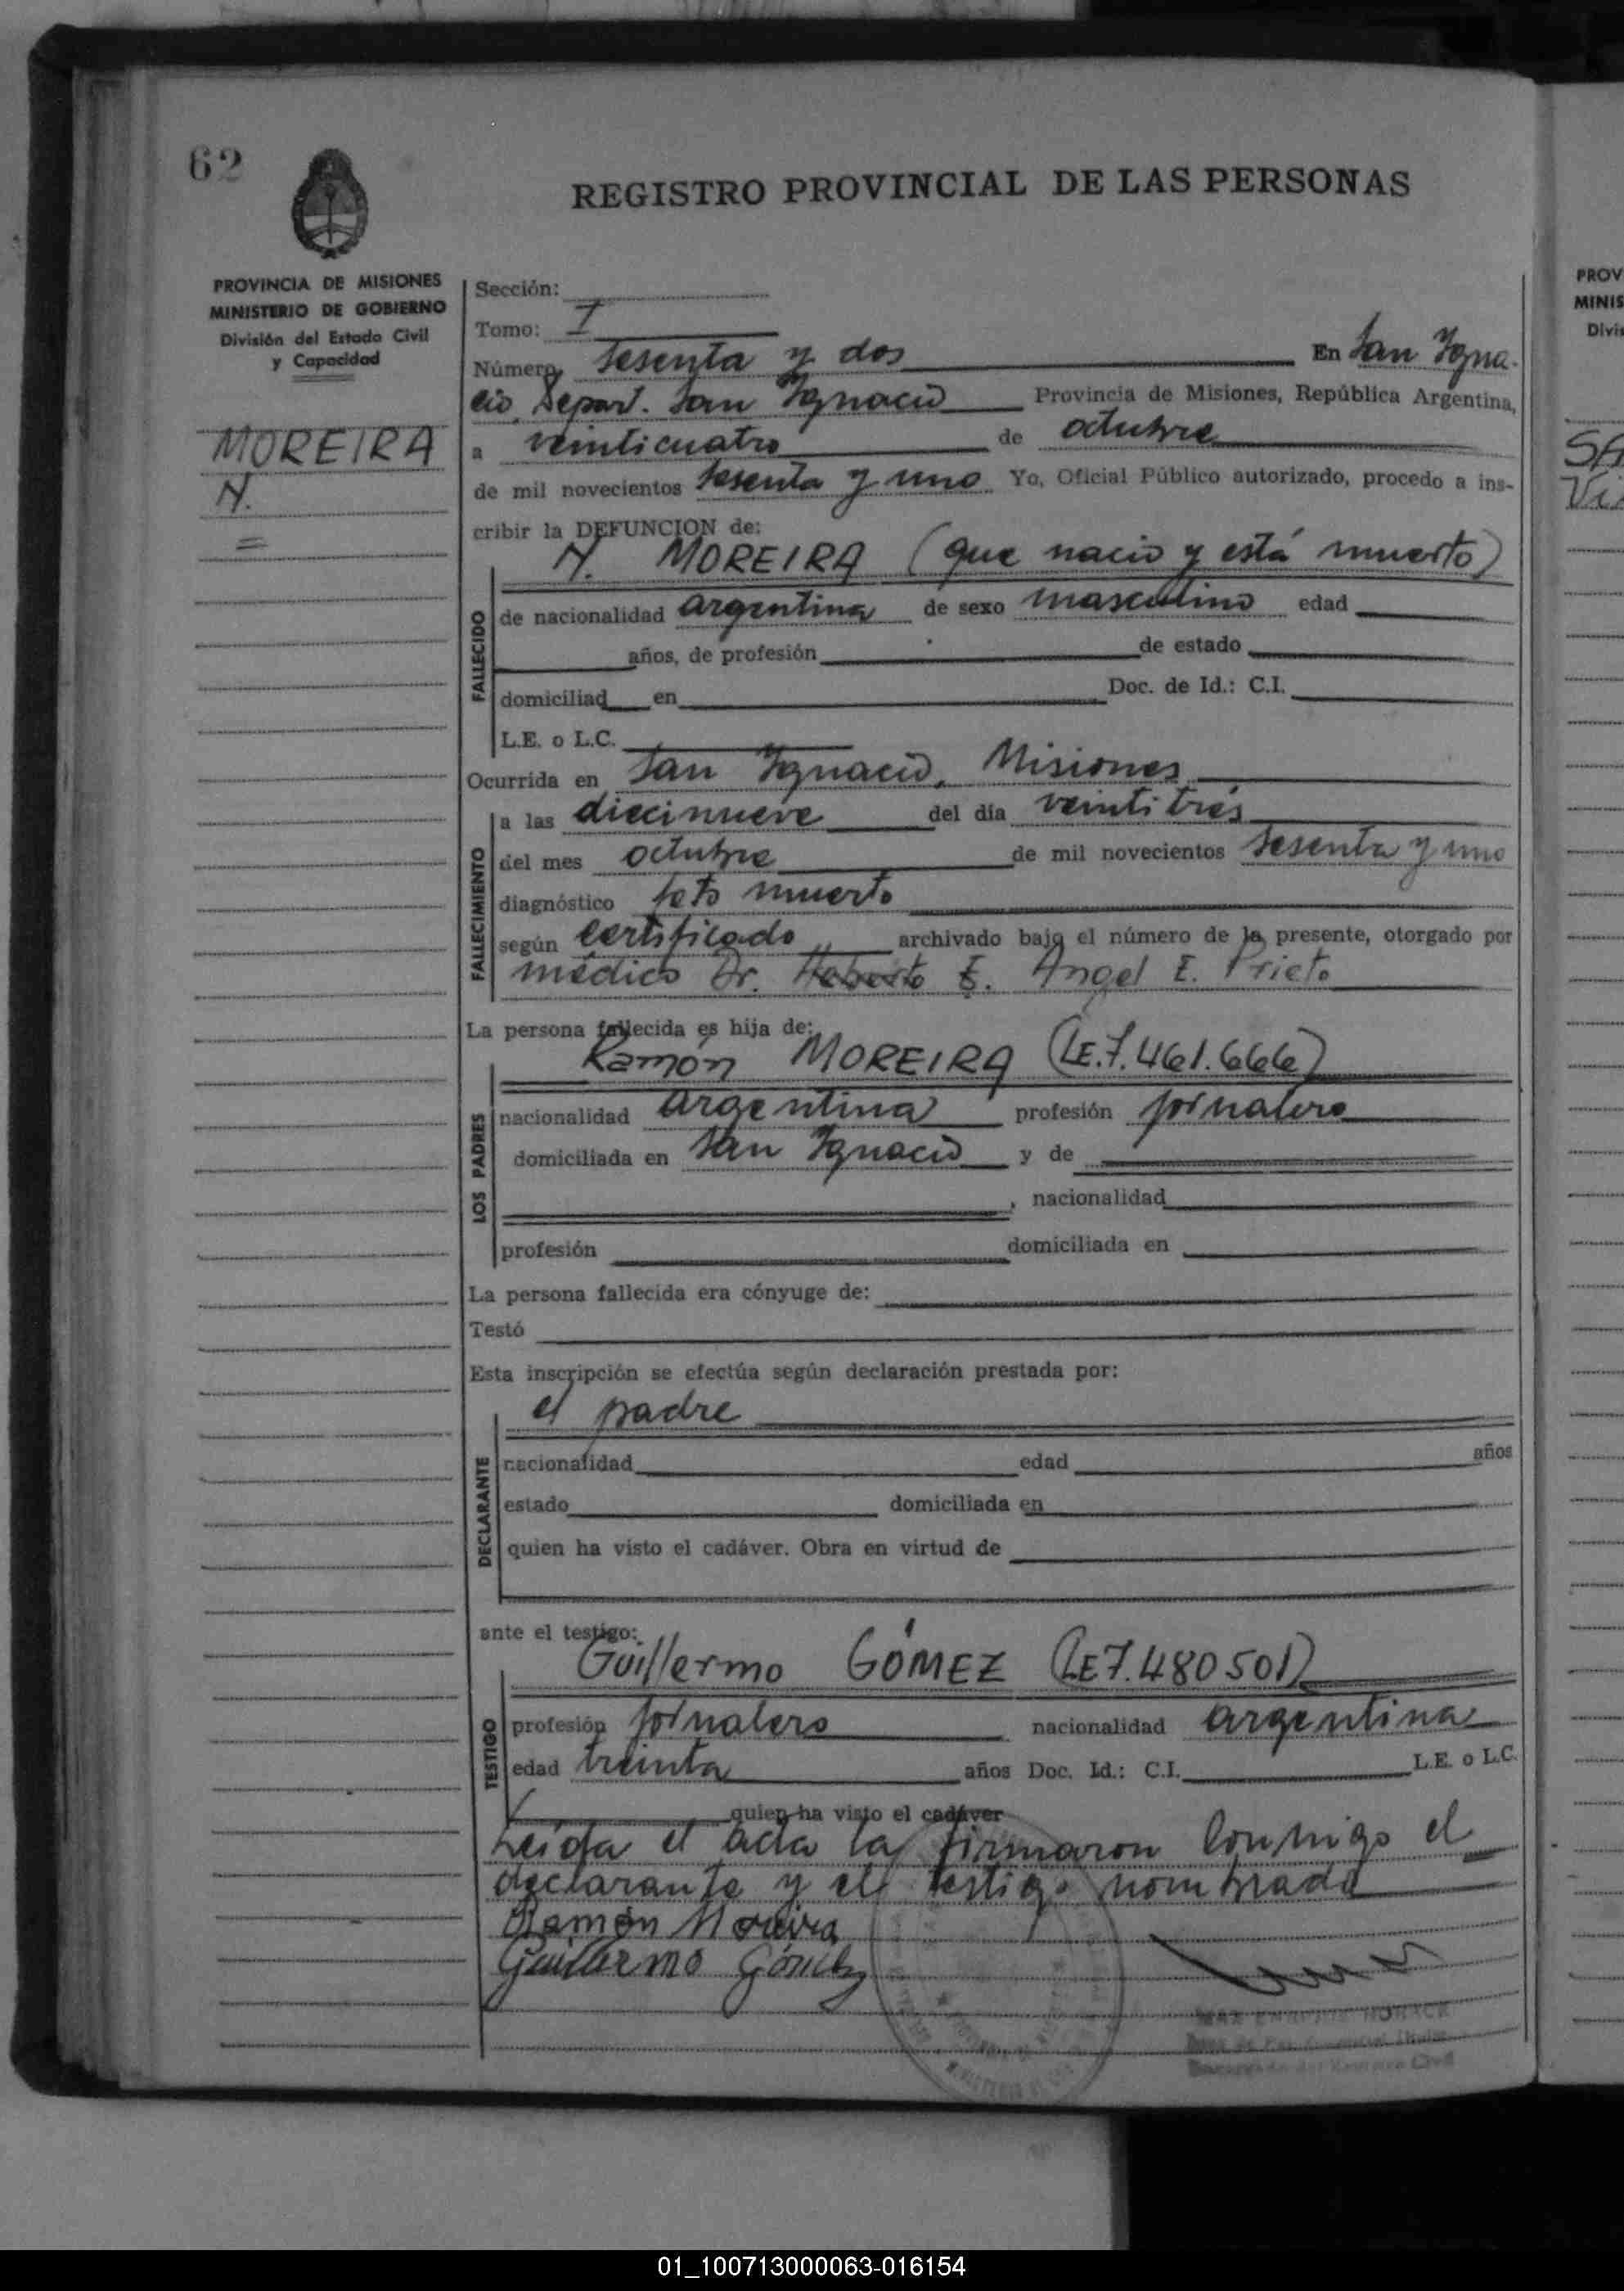 62
REGISTRO PROVINCIAL DE LAS PERSONAS
PROVINCIA DE MISIONES
MINISTERIO DE GOBIERNO
División del Estado Civil
y Capacidad
MOREIRA
N.
Sección:
Tomo: I
Número sesenta y dos En San Igna-
cio, Depart. San Ignacio Provincia de Misiones, República Argentina,
a veinticuatro de octubre
de mil novecientos sesenta y uno Yo, Oficial Público autorizado, procedo a ins-
cribir la DEFUNCION de:
N. MOREIRA (que nació y está muerto)
FALLECIDO
de nacionalidad argentina de sexo masculino edad
años, de profesión de estado
domiciliad en Doc. de Id.: C.I.
L.E. o L.C.
Ocurrida en San Ignacio, Misiones
FALLECIMIENTO
a las diecinueve del día veintitrés
del mes octubre de mil novecientos sesenta y uno
diagnóstico feto muerto
según certificado archivado bajo el número de la presente, otorgado por
médico Dr. E. Angel E. Prieto
La persona fallecida es hija de:
Ramón MOREIRA (LE.7.461.666)
LOS PADRES
nacionalidad argentina profesión jornalero
domiciliada en San Ignacio y de
, nacionalidad
profesión domiciliada en
La persona fallecida era cónyuge de:
Testó
Esta inscripción se efectúa según declaración prestada por:
el padre
DECLARANTE
nacionalidad edad años
estado domiciliada en
quien ha visto el cadáver. Obra en virtud de
ante el testigo:
Guillermo GÓMEZ (LE7.480501)
TESTIGO
profesión jornalero nacionalidad argentina
edad treinta años Doc. Id.: C.I. L.E. o L.C.
quien ha visto el cadáver
Leída el acta la firmaron conmigo el
declarante y el testigo nombrado
Ramón Moreira
Guillermo Gómez
PROV
MINIS
Divis
SA
Vi
01_100713000063-016154